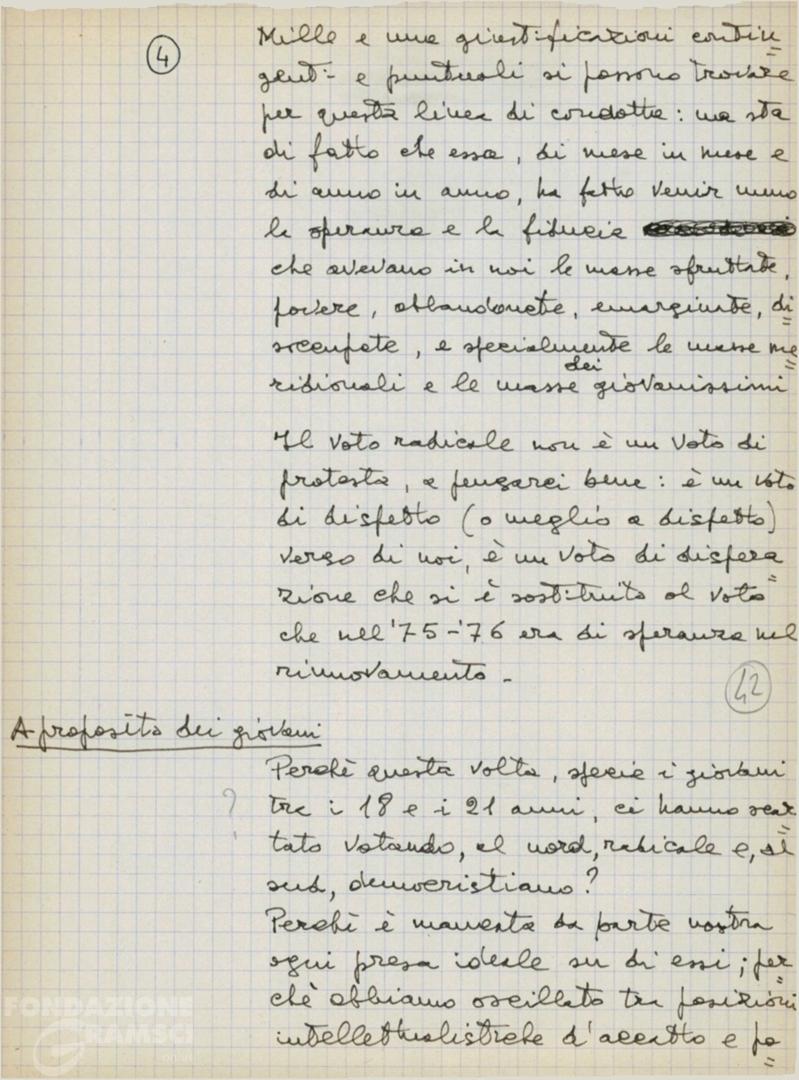 4
Mille e una giustificazioni contin=
genti e puntuali si possono trovare
per questa linea di condotta: ma sta
di fatto che essa, di mese in mese e
di anno in anno, ha fatto venir meno
la speranza e la fiducia
che avevano in noi le masse sfruttate,
povere, abbandonate, emarginate, di=
soccupate, e specialmente le masse me=
ridionali e le masse dei giovanissimi
Il voto radicale non è un voto di
protesta, a pensarci bene: è un voto
di dispetto (o meglio a dispetto)
verso di noi, è un voto di dispera=
zione che si è sostituito al voto
che nel '75-'76 era di speranza nel
rinnovamento.
42
A proposito dei giovani
Perchè questa volta, specie i giovani
? tra i 18 e i 21 anni, ci hanno scar=
tato votando, al nord, radicale e, al
sud, democristiano?
Perchè è mancata da parte nostra
ogni presa ideale su di essi; per=
chè abbiamo oscillato tra posizioni
intellettualistiche d'accatto e po=
FONDAZIONE
GRAMSCI